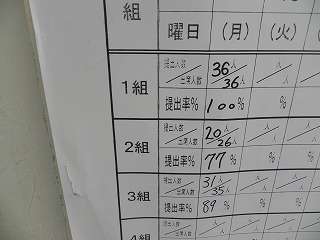 組
曜日 (月) (火)
1組 提出人数/出席人数 36人/36人 人/人 人/人
提出率% 100% % %
2組 提出人数/出席人数 20人/26人 人/人 人/人
提出率% 77% % %
3組 提出人数/出席人数 31人/35人 人/人 人/人
提出率% 89% % %
4組 提出人数